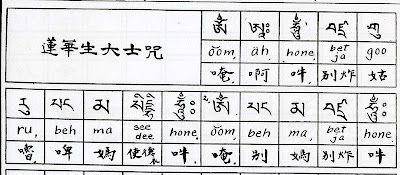 蓮華生大士咒
ཨོཾ ཨཱཿ ཧཱུྃ བཛྲ གུ
ōom, āh, hone, bet ja goo
唵 啊 吽 別炸 姑
རུ པད མ སིདྡྷི ཧཱུྃ 2, ཨོཾ པད མ བཛྲ ཧཱུྃ
ru, beh ma see dee hone. ōom, beh ma, bet ja hone
嚕 啤 媽 使德 吽. 唵. 別 媽 別炸 吽